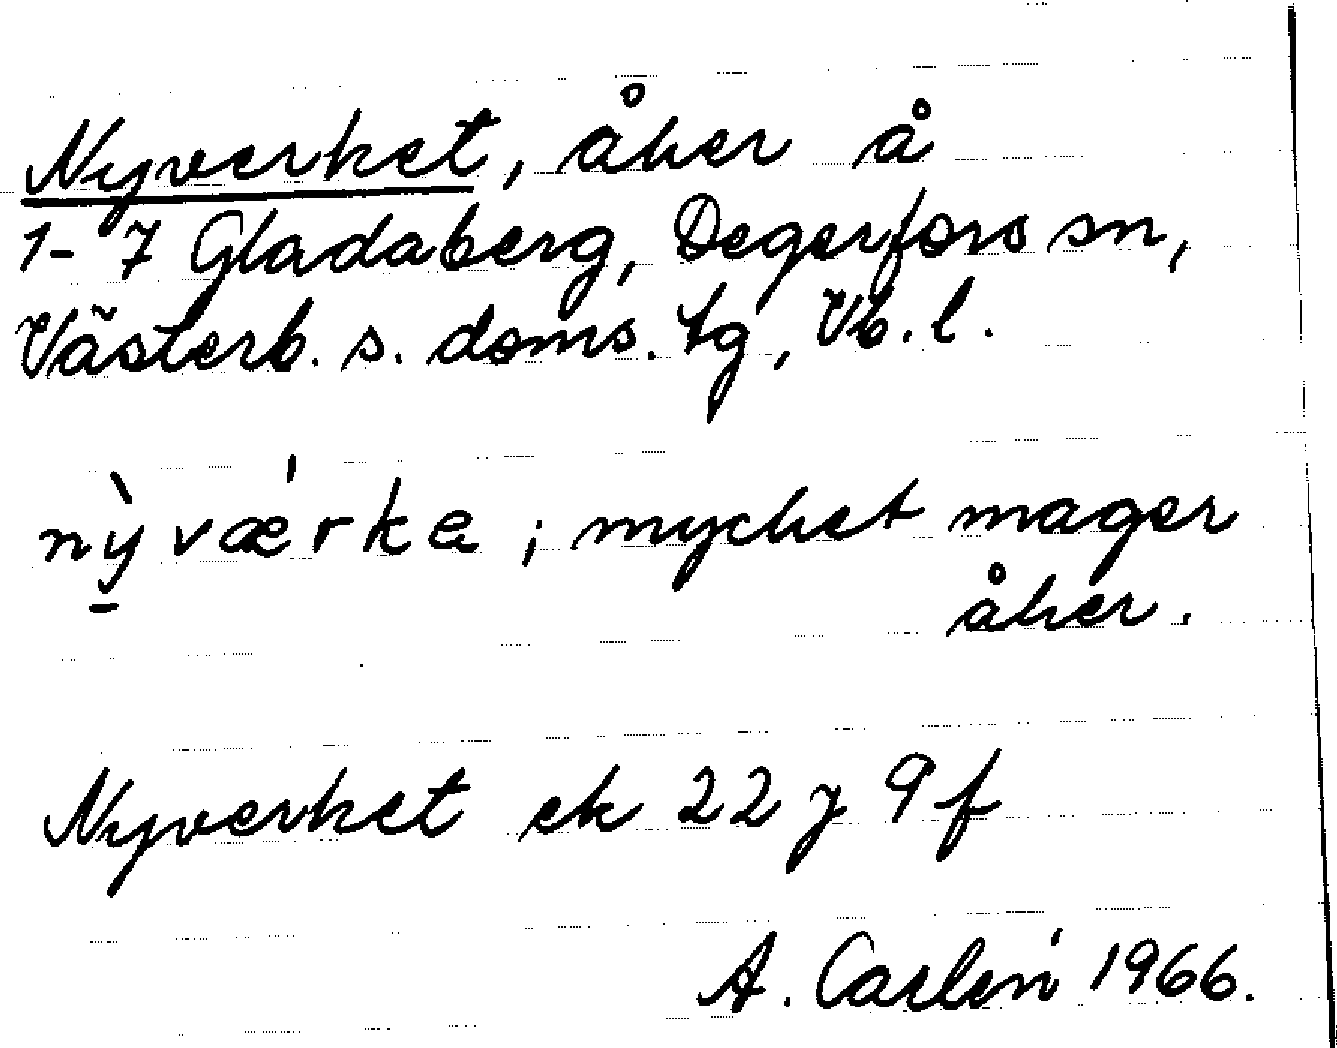 Nyverket, åker å
1-7 Gladaberg, Degerfors sn,
Västerb. s. doms. tg, Vb. l.
nỳ̱væ'rka ; mycket mager
åker.
Nyverket ek 22 J 9 f
A. Carlén 1966.